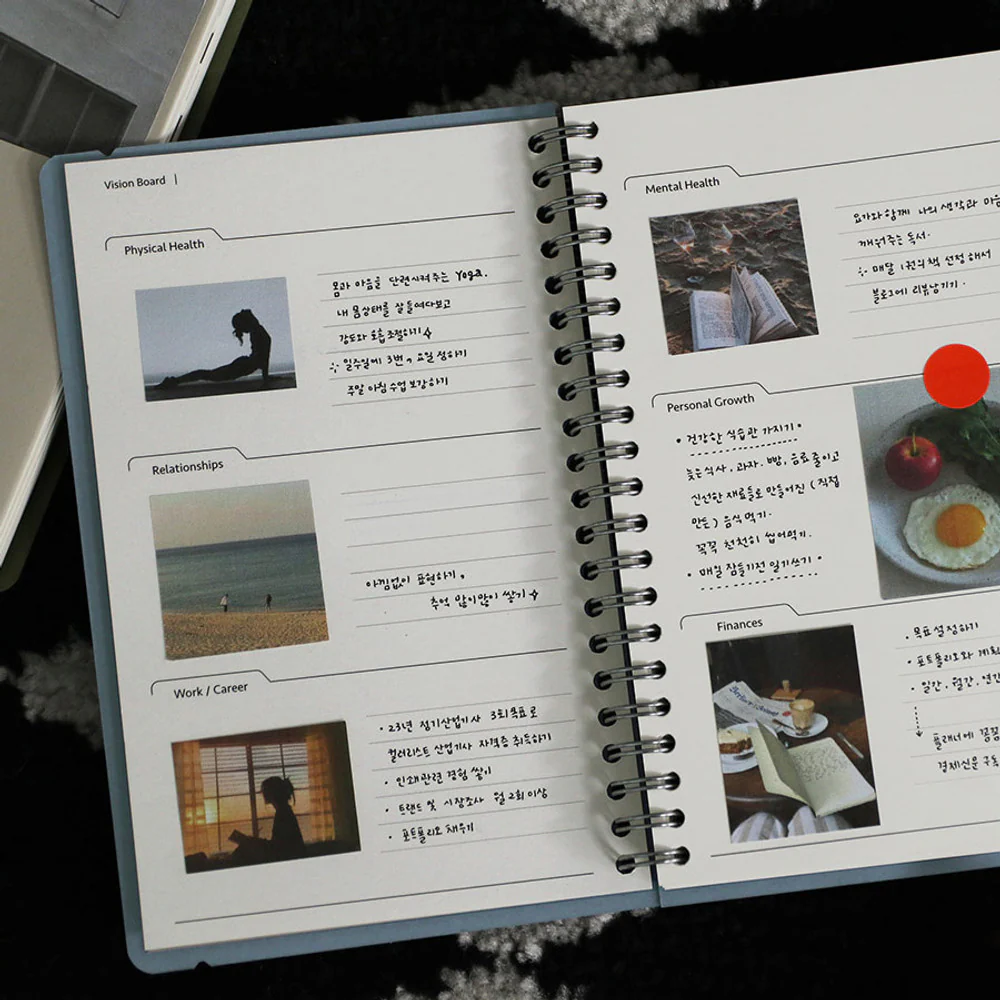 Vision Board |
Physical Health
몸과 마음을 단련시켜 주는 Yoga.
내 몸상태를 잘 들여다보고
강도와 호흡 조절하기
일주일에 3번, 요일 정하기
주말 아침 수업 보강하기
Relationships
아낌없이 표현하기,
추억 많이많이 쌓기
Work / Career
• 23년 정기산업기사 3회 목표로
컬러리스트 산업기사 자격증 취득하기
• 인쇄 관련 경험 쌓기
• 트랜드 및 시장조사 월 2회 이상
• 포트폴리오 채우기
Mental Health
요가와 함께 나의 생각과 마음
깨워주는 독서.
매달 1권의 책 선정해서
블로그에 리뷰남기기.
Personal Growth
• 건강한 식습관 가지기 •
늦은식사, 과자, 빵, 음료 줄이고
신선한 재료들로 만들어진 (직접
만든) 음식 먹기.
꼭꼭 천천히 씹어먹기.
• 매일 잠들기전 일기쓰기 •
Finances
• 목표 설정하기
• 포트폴리오와 계획
• 일간, 월간, 연간
플래너에 꼼꼼
경제신문 구독